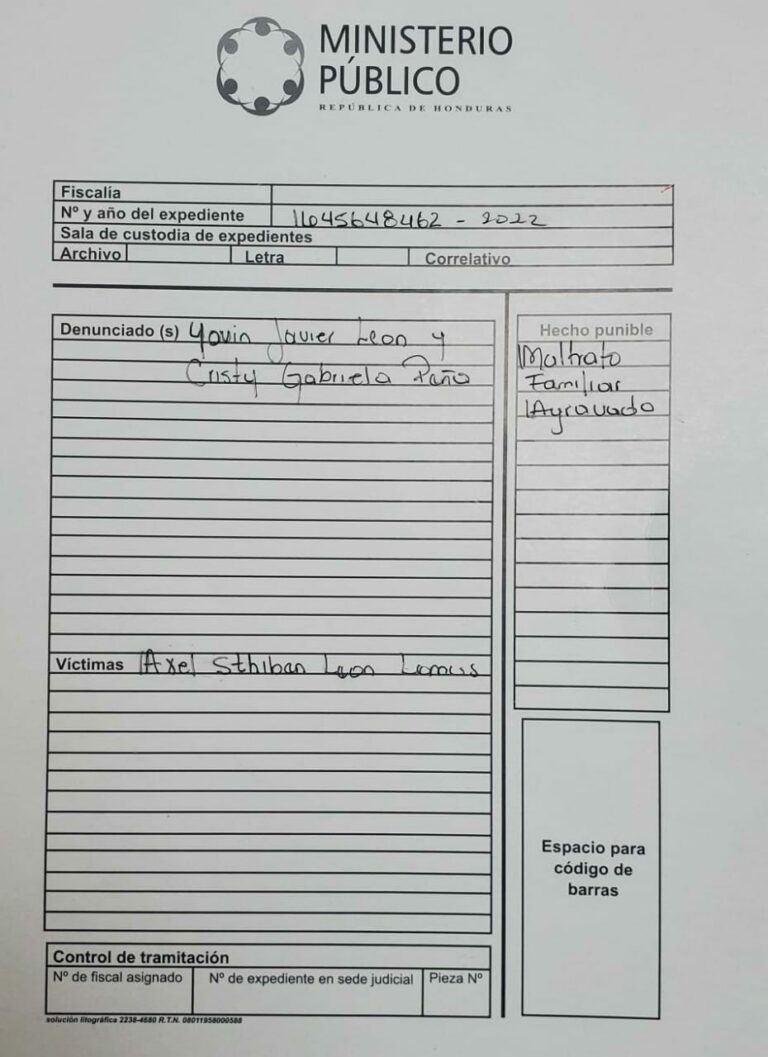 MINISTERIO
PÚBLICO
REPÚBLICA DE HONDURAS
Fiscalía
Nº y año del expediente 11045648462 - 2022
Sala de custodia de expedientes
Archivo Letra Correlativo
Denunciado (s) Yovin Javier Leon y
Cristy Gabriela
Hecho punible
Maltrato
Familiar
Agravado
Víctimas Axel Sthiban Leon Lemus
Espacio para
código de
barras
Control de tramitación
Nº de fiscal asignado Nº de expediente en sede judicial Pieza Nº
solución litográfica 2238-4680 R.T.N. 08011958000588